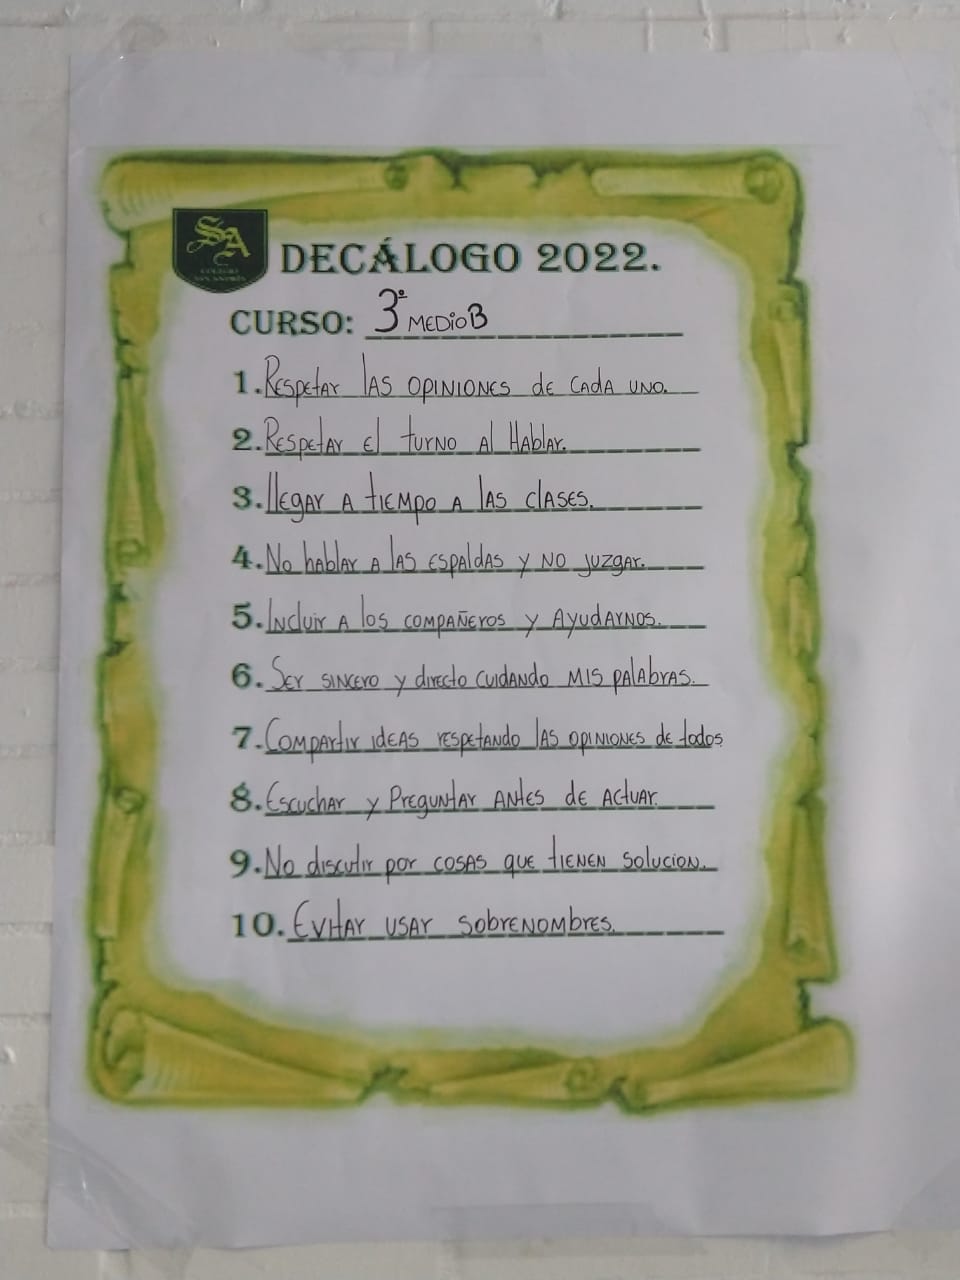 SA
COLEGIO
SAN ANDRÉS
DECÁLOGO 2022.
CURSO: 3º MEDIO B
1. Respetar las opiniones de cada uno.
2. Respetar el turno al hablar.
3. llegar a tiempo a las clases.
4. No hablar a las espaldas y no juzgar.
5. Incluir a los compañeros y Ayudarnos.
6. Ser sincero y directo cuidando mis palabras.
7. Compartir ideas respetando las opiniones de todos
8. Escuchar y Preguntar antes de actuar.
9. No discutir por cosas que tienen solucion.
10. Evitar usar sobrenombres.